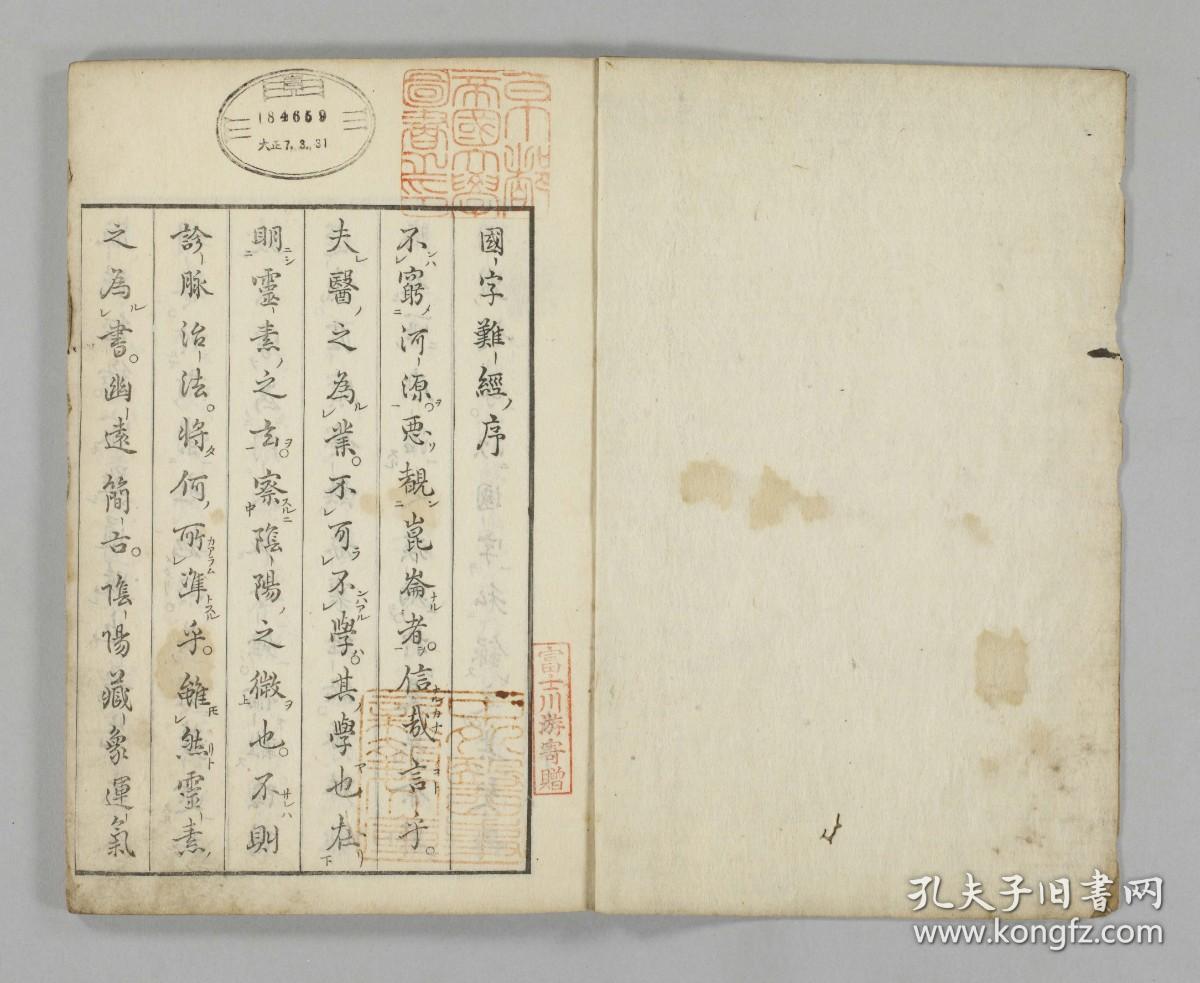 國字難經序
不窮河源惡覩崑崙者信哉言乎
夫醫之為業不可不學其學也在
明靈素之玄察陰陽之微也不則
診脉治法將何所準乎雖然靈素
之為書幽遠簡古陰陽藏象運氣
184659
大正7.3.31
京都
帝國大學
圖書之印
富士川游寄贈
孔夫子旧书网
www.kongfz.com